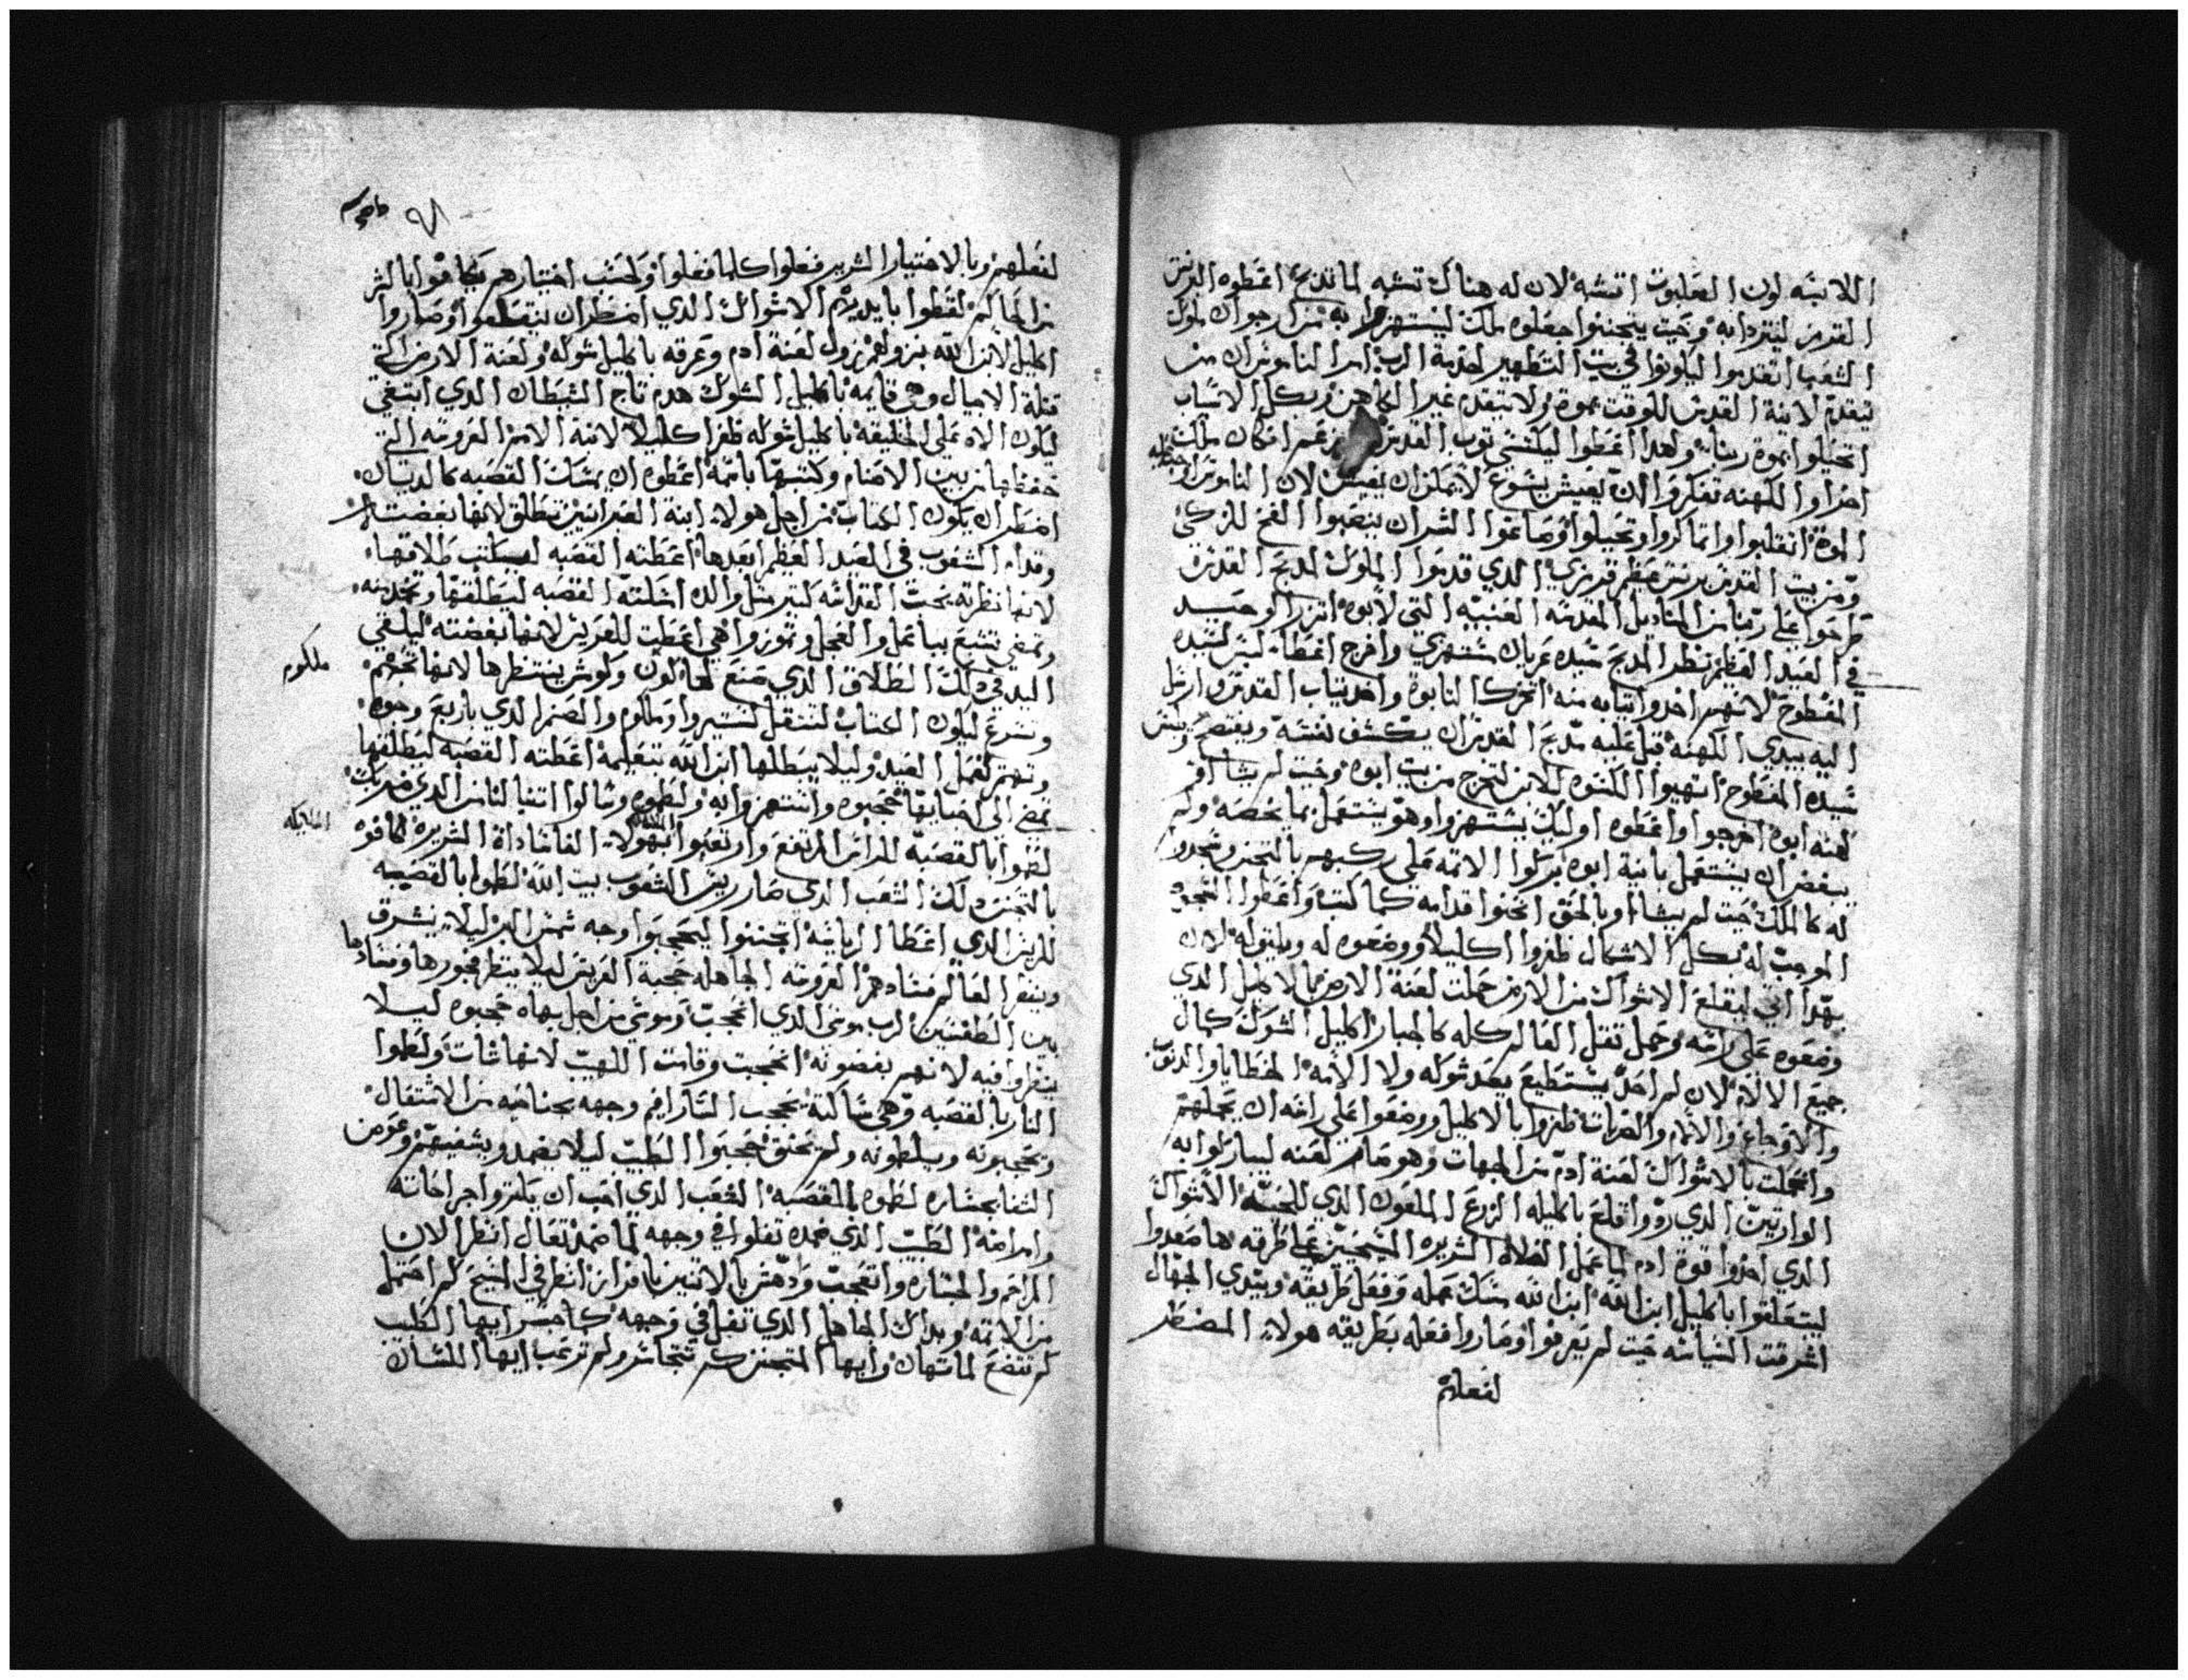 اللابسه لون العلبوت اتشه لان له هناك تشبه لما تدبح اعطوه البرنس
القرمز ليتردا به وحيت يتجننوا جعلوه ملك ليستهزوا به من ارجوان ملوك
الشعب اتقدموا ليكونوا في بيت التطهير لخدمة الرب امر الناموس ان من
تيقدم لانية القدس للوقت بموة ولا يتقدم غير الكاهن وبكل الاسباب
اتحيلوا بموة ربنا ولهدا اعطوا ليكتسي توب القدس
احزاوا الكهنه تفكروا ان يعيش يسوع لا يمكن ان يعيش لان الناموس
الموة انقلبوا واتماكروا وتحيلوا وصاغوا الشر ان ينصبوا الفخ للزكي
ومن بيت القدس برنس عظم قرمزي الدي قدموا الملوك لمدبح القدس
طرحوا على ربنا من المناديل المقدسه العنبيه التي لابوه اتزر الوحيد
في العيد العظيم نظر المدبح سيده عريان ستهزي وافرج اغطاه لبس لسيده
المفطوح لانهم اخدوا تيابه منه اتحرك النابوة واخد تياب القدس وارسل
اليه بيدي الكهنه قبل عليه مدبح القدس ان يكشف نفسه ويفتضح
سيده المفطوح انتهبوا الكسوه للابن لتخرج من بيت ابوه وحيت لم يشاوا
كهنة ابوه اخرجوا واعطوه اوليك يستهزوا وهو يستعمل بما يخصه ولم
يبغض ان يستعمل بانية ابوه بركوا الامه على ركبهم بالتجنن وسجدوا
له كالملك حيت لم يشاوا وبالحق انحنوا قدامه كما كتب واعطوا السجود
الموجب له بكل الاشكال ظفروا اكليلا ووضعوه له ويليق له لان
بهدا اتي ليقلع الاشواك من الارض حملت لعنة الارض بالاكليل الدي
وضعوه على راسه وحمل تقل العالم كله كالجبار اكليل الشوك كمال
جميع الالام لان لم احد يستطيع بعد شوكه ولا الامه الخطايا والدنوب
والاوجاع والالام والضربات ظفروا بالاكليل ووضعوا على راسه ان يحملهم
وانحلت بالاشواك لعنة ادم من الجهات وهو صار لعنه ليباركوا به
الوارتين الدي رووا قلع باكليله الزرع الملعون الدي للحسه الاشواك
الدي احزوا قوة ادم لما عمل الفلاح الشريره المسيحيين على طرقه ها صعدوا
ليتعلقوا باكليل ابن الله ابن الله مسك عمله وفعل طريقه وبيدي الجهال
اشرقت السياسه حيت لم يعرفوا وصاروا فعله بطريقه هولاي المضطر
لفعلهم
لفعلهم وبالاختيار الشرير فعلوا كلما فعلوا ولحسب اختيارهم يتكافوا بالشر
من الحاكم لقطوا بايديهم الاشواك الدي اضطر ان يتقطعوا وصاروا
اكليل لابن الله بنزولهم نزول لعنة ادم وعرقه باكليل شوكه ولعنة الارض التي
قتلة الاجيال وهي قايمه باكليل الشوك هدم تاج الشيطان الدي ابتغي
ليكون الاه على الخليقه باكليل شوكه ظفر اكليلا لابنة الامم العروسه التي
حفظها من بين الاصنام وكتبها باسمه اعطوه ان يمسك القصبه كالديان
اضطر ان يكون الكتاب من اجل هولاي ابنة العبرانيين تطلق لانها بغضت
وقدام الشعوب في العيد العظيم ابعدها اعطته القصبه ليكتب طلاقها
لانها نظرته تحت القدامه لتبرمتل والدك اسلته القصبه ليطلقها وتخدمه
وتمضي تتبع بيباعل والعجل وتموز وهي اعطيت للعريس لانها بغضته ليلغي
اليد في دلك الطلاق الدي صنع لها كون وكوش ينتظرها لانها
وتسرع ليكون الكتاب لتنتقل لستيروا وملكوم والصنم الدي باربع وجوه
وتهتم لعمل العيد وليلا يبطلها ابن الله بتعليمه اعطته القصبه ليطلقها
تمضي الي احبايها حجبوه واستهزوا به ولطموه وسالوا اتنبا لنا من الدي ضربك
لطموا بالقصبه للراس المرتفع وارتعبوا لهولاي الفاشاداة الشريره كافوه
بالتجنن دلك الشعب الدي صار ريس الشعوب بيت الله لطموا بالقصبه
للريس الدي اعطا الرياسه اتجننوا ليحجبوا وجه شمس البر ليلا يشرق
وينير العالم فسادهم العروسه الجاهله حجبة العريس ليلا ينظر فجورها وفسادها
بين الطغيين الرب موسى الدي اتحجبت وموسى من اجل بهاه حجبوه ليلا
ينظروا فيه لانهم يبغضونه اتحجبت وقامت اللهيب لانها شات ولطموا
النار بالقصبه وهي ساكته يحجب السارافيم وجهه بجناحيه من الاشتعال
وتحجبونه ويلطمونه ولم تحنق حجبوا الطبيب ليلا يضمد ويشفيهم وعوض
الشفا بخساره لطموه بالقصبه الشعب الدي احب ان يكتروا جراحاته
وامراضه الطبيب الدي ضمده تفلوا في وجهه لما ضمد تعال انظر الان
المراحم والجساره واتعجب وادهش بالاتنين يا فراز انظر في المسيح كم احتمل
من الامه وبداك الجاهل الدي تفل في وجهه كما جسر ايها الطيب
كم تتضع لما تهان وايها المتجنن كم تتجاسر ولم ترتعب ايها اللسان
ملكوم